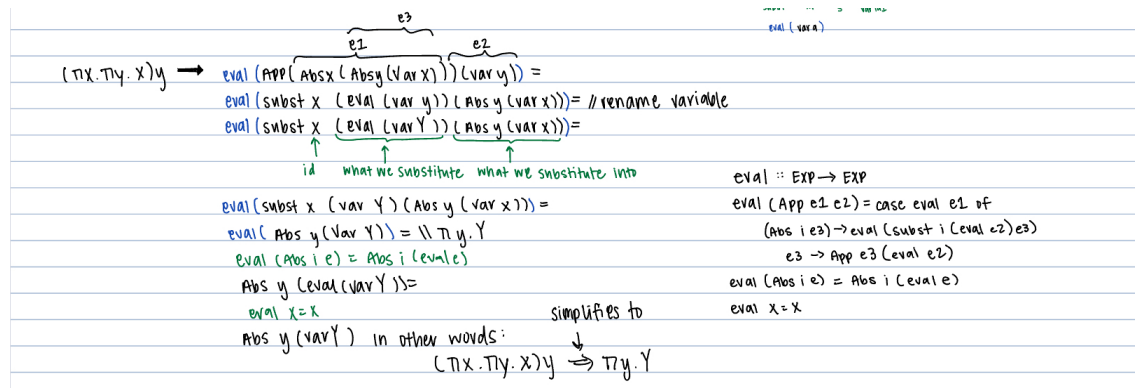 eval (var a)
e3
e1 e2
(πx.πy.x)y → eval (APP(Absx(Absy(Varx)))(vary)) =
eval (subst x (eval (var y)) (Abs y (var x))) = // rename variable
eval (subst x (eval (var Y)) (Abs y (var x))) =
id what we substitute what we substitute into
eval (subst x (var Y) (Abs y (var x))) =
eval ( Abs y (Var Y)) = \\ πy.Y
eval (Abs i e) = Abs i (eval e)
Abs y (eval (var Y)) =
eval x = x
Abs y (var Y) in other words:
simplifies to
(πx.πy.x)y ⇒ πy.Y
eval :: EXP → EXP
eval (App e1 e2) = case eval e1 of
(Abs i e3) → eval (subst i (eval e2) e3)
e3 → App e3 (eval e2)
eval (Abs i e) = Abs i (eval e)
eval x = x